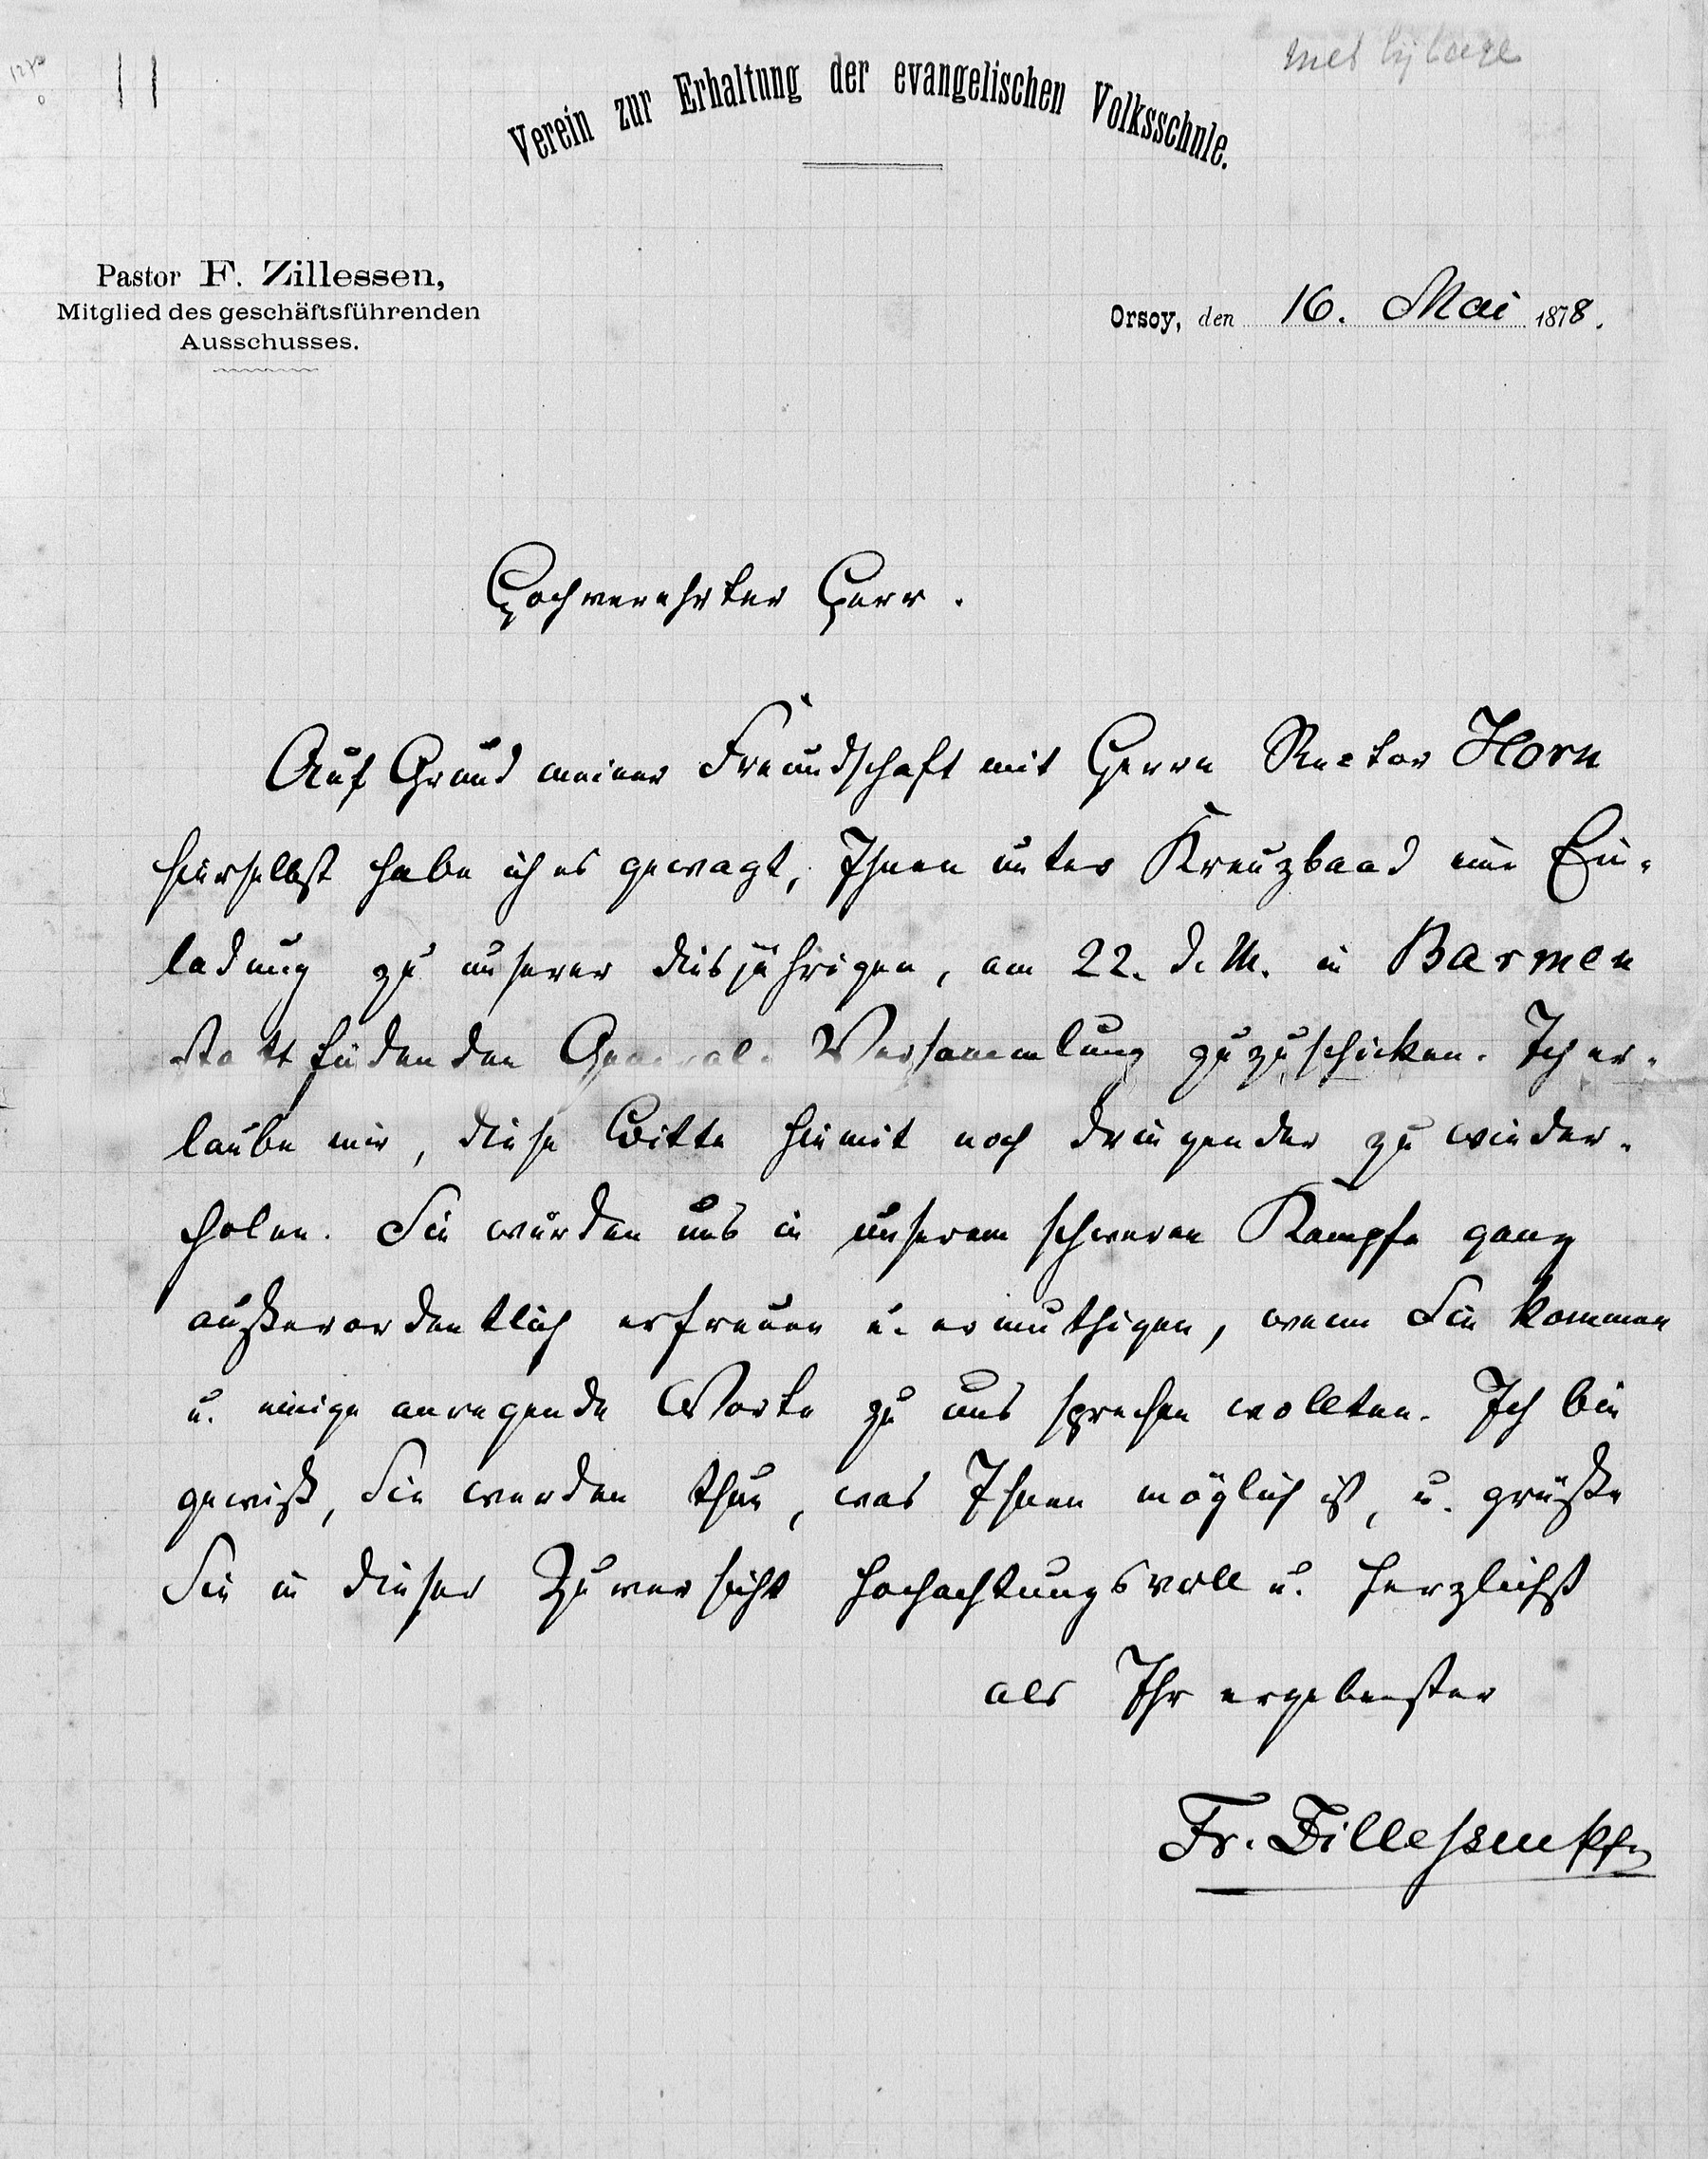 met bijlage
11
Verein zur Erhaltung der evangelischen Volksschule.
Pastor F. Zillessen,
Mitglied des geschäftsführenden
Ausschusses.
Orsoy, den 16. Mai 1878.
Hochverehrter Herr.
Auf Grund meiner Freundschaft mit Herrn Rector Horn
hierselbst habe ich es gewagt, Ihnen unter Kreuzband eine Ein-
ladung zu unserer diesjährigen, am 22. d. M. in Barmen
stattfindenden General-Versammlung zuzuschicken. Ich er-
laube mir, diese Bitte hiemit noch dringender zu wieder-
holen. Sie würden uns in unserem schweren Kampfe ganz
außerordentlich erfreuen u. ermuthigen, wenn Sie kommen
u. einige anregende Worte zu uns sprechen wollten. Ich bin
gewiß, Sie werden thun, was Ihnen möglich ist, u. grüße
Sie in dieser Zuversicht hochachtungsvoll u. herzlichst
als Ihr ergebenster
Fr. Zillessen Pfr